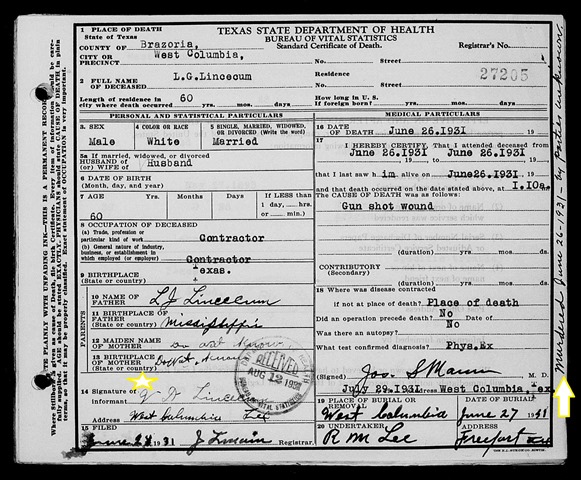 TEXAS STATE DEPARTMENT OF HEALTH
BUREAU OF VITAL STATISTICS
Standard Certificate of Death.
Registrar's No.
1 PLACE OF DEATH
State of Texas
COUNTY OF Brazoria,
CITY OR PRECINCT West Columbia, No. Street
2 FULL NAME OF DECEASED L.G.Lincecum
Residence No. Street
27205
Length of residence in city where death occurred 60 yrs. mos. days.
How long in U. S. if foreign born? yrs. mos. days.
PERSONAL AND STATISTICAL PARTICULARS
3. SEX Male
4 COLOR OR RACE White
5 SINGLE, MARRIED, WIDOWED, OR DIVORCED (Write the word) Married
5a If married, widowed, or divorced
HUSBAND OF (or) WIFE OF Husband
6 DATE OF BIRTH
(Month, day, and year)
7 AGE Years Months Days If LESS than
60
1 day, hrs.
or min.
8 OCCUPATION OF DECEASED
(a) Trade, profession or particular kind of work Contractor
(b) General nature of industry, business, or establishment in which employed or employer) Contractor
9 BIRTHPLACE Texas.
(State or country)
PARENTS
10 NAME OF FATHER L J Lincecum
11 BIRTHPLACE OF FATHER Mississippi
(State or country)
12 MAIDEN NAME OF MOTHER Do not Know
13 BIRTHPLACE OF MOTHER Do not Know
(State or country)
14 Signature of informant
Address West Columbia Tex
15 FILED June 27 1931 Registrar.
RECEIVED
AUG 12
MEDICAL PARTICULARS
16 DATE OF DEATH June 26.1931 19
17 I HEREBY CERTIFY, That I attended deceased from
June 26.1931 to June 26.1931 19
that I last saw h im. alive on June26.1931 19
and that death occurred on the date stated above, at I.IOa m.
THE CAUSE OF DEATH was as follows:
Gun shot wound
(duration) yrs. mos. ds.
CONTRIBUTORY
(Secondary)
(duration) yrs. mos. ds.
18 Where was disease contracted
if not at place of death? Place of death
Did an operation precede death? No
Was there an autopsy? No
What test confirmed diagnosis? Phys,Ex
(Signed) M. D.
July 29.1931 Address West Columbia, Tex.
19 PLACE OF BURIAL OR REMOVAL West Columbia
DATE OF BURIAL June 27 1931
20 UNDERTAKER R M Lee
ADDRESS Freeport Tex
Murdered June 26-1931 - by parties unknown